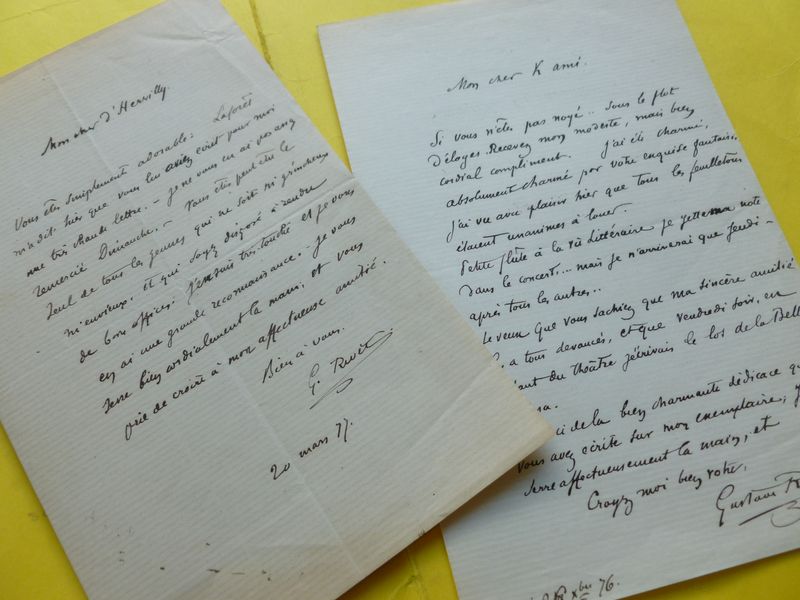 Mon cher d'Hervilly.
Vous êtes simplement adorable. Laforêt
m'a dit hier que vous lui aviez écrit pour moi
une très chaude lettre. – Je ne vous en ai pas assez
remercié Dimanche. – Vous êtes peut être le
seul de tous les jeunes qui ne soit ni grincheux
ni envieux, et qui soyez disposé à rendre
de bons offices. J'en suis très touché et je vous
en ai une grande reconnaissance. – Je vous
serre bien cordialement la main, et vous
prie de croire à mon affectueuse amitié.
Bien à vous.
G. Rivet
20 mars 77.
Mon cher K ami.
Si vous n'êtes pas noyé.. sous le flot
d'éloges. Recevez mon modeste, mais bien
cordial compliment. J'ai été charmé,
absolument charmé par votre exquise fantaisie.
J'ai vu avec plaisir hier que tous les feuilletons
étaient unanimes à louer.
Petite flûte à la Vie littéraire je jetterai ma note
dans le concert... mais je n'arriverai que jeudi –
après tous les autres..
Je veux que vous sachiez que ma sincère amitié
a tous devancés, et que vendredi soir, en
du théâtre j'écrivais le los de la Belle
de la bien charmante dédicace que
vous avez écrite sur mon exemplaire, je
serre affectueusement la main, et
Croyez moi bien vôtre,
Gustave
xbre 76.